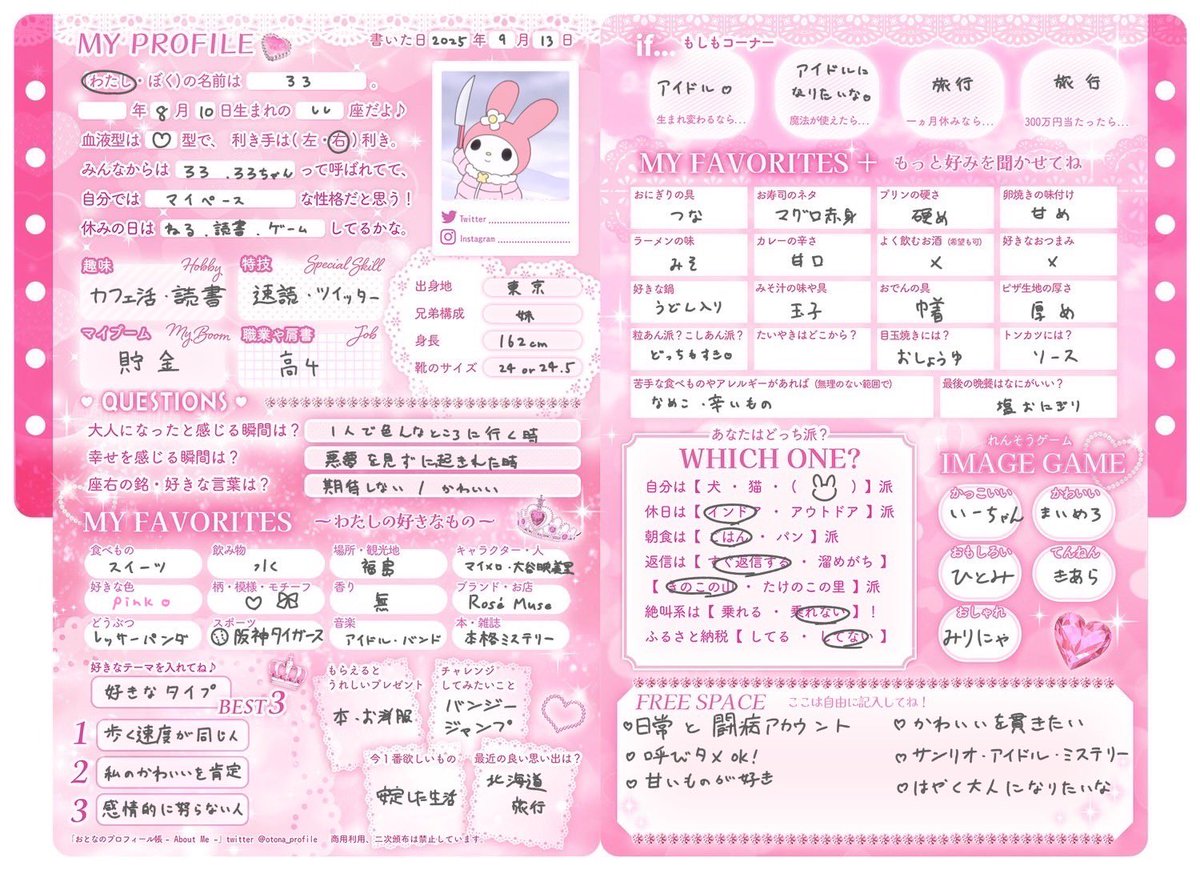 MY PROFILE
書いた日 2025 年 9 月 13 日
(わたし・ぼく)の名前は るる 。
年 8 月 10 日生まれの しし 座だよ♪
血液型は ♡ 型で、 利き手は(左・右)利き。
みんなからは るる.るるちゃん って呼ばれてて、
自分では マイペース な性格だと思う!
休みの日は ねる.読書.ゲーム してるかな。
Twitter
Instagram
趣味 Hobby
カフェ活・読書
特技 Special Skill
速読・ツイッター
マイブーム My Boom
貯金
職業や肩書 Job
高4
出身地 東京
兄弟構成 妹
身長 162cm
靴のサイズ 24 or 24.5
♥ QUESTIONS ♥
大人になったと感じる瞬間は? 1人で色んなところに行く時
幸せを感じる瞬間は? 悪夢を見ずに起きれた時
座右の銘・好きな言葉は? 期待しない / かわいい
MY FAVORITES ~わたしの好きなもの~
食べもの スイーツ
飲み物 水
場所・観光地 福島
キャラクター・人 マイメロ・大谷映美里
好きな色 pink♡
柄・模様・モチーフ ♡
香り 無
ブランド・お店 Rosé Muse
どうぶつ レッサーパンダ
スポーツ 阪神タイガース
音楽 アイドル・バンド
本・雑誌 本格ミステリー
好きなテーマを入れてね♪
好きなタイプ
BEST3
1 歩く速度が同じ人
2 私のかわいいを肯定
3 感情的に努らない人
もらえるとうれしいプレゼント
本・お洋服
チャレンジしてみたいこと
バンジー
ジャンプ
今1番欲しいもの
安定した生活
最近の良い思い出は?
北海道
旅行
「おとなのプロフィール帳 - About Me -」twitter @otona_profile 商用利用、二次頒布は禁止しています。
if... もしもコーナー
アイドル♡
生まれ変わるなら...
アイドルに
なりたいな♡
魔法が使えたら...
旅行
一ヵ月休みなら...
旅行
300万円当たったら...
MY FAVORITES + もっと好みを聞かせてね
おにぎりの具 つな
お寿司のネタ マグロ赤身
プリンの硬さ 硬め
卵焼きの味付け 甘め
ラーメンの味 みそ
カレーの辛さ 甘口
よく飲むお酒(希望も可) ×
好きなおつまみ ×
好きな鍋 うどん入り
みそ汁の味や具 玉子
おでんの具 巾着
ピザ生地の厚さ 厚め
粒あん派?こしあん派? どっちもすき♡
たいやきはどこから?
目玉焼きには? おしょうゆ
トンカツには? ソース
苦手な食べものやアレルギーがあれば (無理のない範囲で)
なめこ・辛いもの
最後の晩餐はなにがいい?
塩おにぎり
あなたはどっち派?
WHICH ONE?
自分は【 犬 ・ 猫 ・( )】派
休日は【 インドア ・ アウトドア 】派
朝食は【 ごはん ・ パン 】派
返信は【 すぐ返信する ・ 溜めがち 】
【 きのこの山 ・ たけのこの里 】派
絶叫系は【 乗れる ・ 乗れない 】!
ふるさと納税【 してる ・ してない 】
れんそうゲーム
IMAGE GAME
かっこいい いーちゃん
かわいい まいめろ
おもしろい ひとみ
てんねん きあら
おしゃれ みりにゃ
FREE SPACE ここは自由に記入してね!
♡日常と闘病アカウント
♡呼びタメok!
♡甘いものが好き
♡かわいいを貫きたい
♡サンリオ・アイドル・ミステリー
♡はやく大人になりたいな